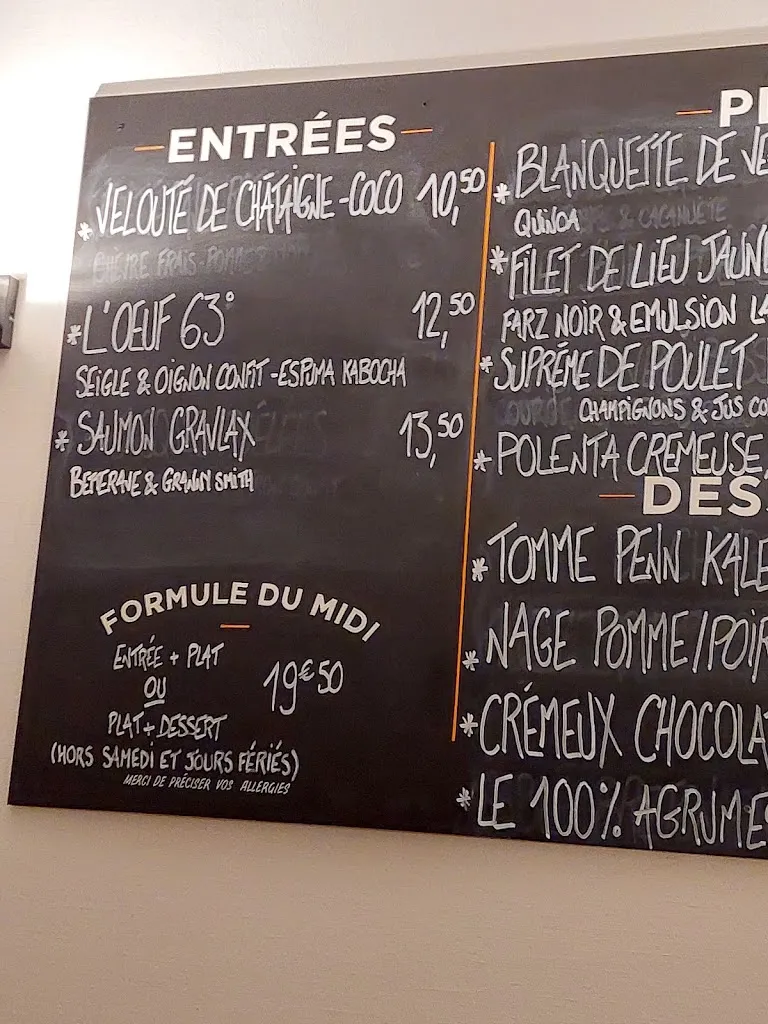 ENTRÉES
* VELOUTÉ DE CHÂTAIGNE-COCO 10,50
* L'OEUF 63° 12,50
SEIGLE & OIGNON CONFIT - ESPUMA KABOCHA
* SAUMON GRAVLAX 13,50
BETTERAVE & GRANNY SMITH
FORMULE DU MIDI
ENTRÉE + PLAT
OU
PLAT + DESSERT
19€50
(HORS SAMEDI ET JOURS FÉRIÉS)
MERCI DE PRÉCISER VOS ALLERGIES
* BLANQUETTE DE
QUINOA
* FILET DE LIEU JAUN
FARZ NOIR & EMULSION
* SUPRÊME DE POULET
CHAMPIGNONS & JUS
* POLENTA CREMEUSE,
DES
* TOMME PENN KALE
* NAGE POMME/POIR
* CRÉMEUX CHOCOLA
* LE 100% AGRUMES